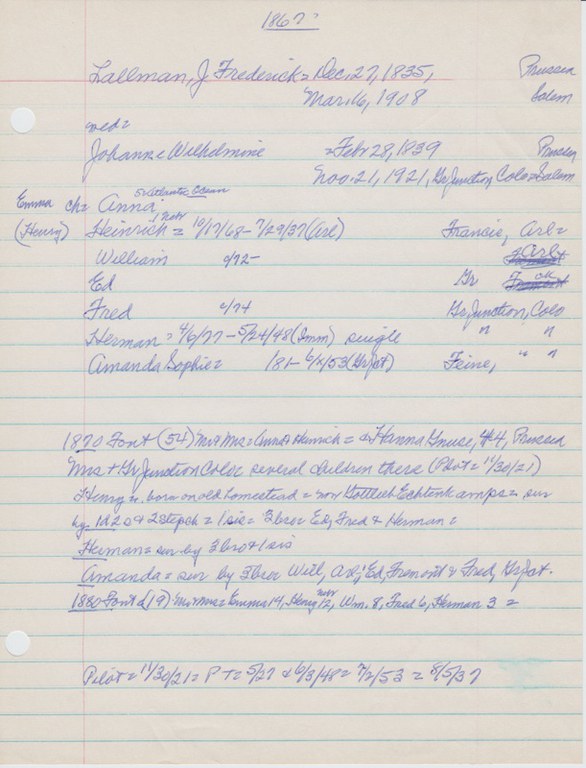 1867?
Lallman, J Frederick = Dec. 27, 1835, Prussia
Mar. 16, 1908 Salem
wed =
Johanne Wilhelmine = Feb 28, 1839 Prussia
Nov. 21, 1921, Gr Junction Colo = Salem
on Atlantic Ocean
Emma ch = Anna
Nebr
(Henry) Heinrich = 10/17/68 - 7/29/37 (Arl) Francis, Arl =
William c/72 - Arl +
Ed Gr
Fred c/74 Gr Junction, Colo
Herman = 4/6/77 - 5/24/48 (Imm) single " "
Amanda Sophie = 181 - 6/ /53 (Gr Jct) Feine, " "
1870 Font (54) Mr + Mrs = Anna + Heinrich = + Hanna Gnuse, #4, Prussia
Mrs + Gr Junction Color several children there (Pilot = 11/30/21)
Henry = born on old homestead = Gottlieb Echtenkamps = sur
by 1d 2s & 2 stepch = 1 sis = 3 bro = Ed, Fred + Herman =
Herman = sur by 3 bro + 1 sis
Amanda = sur by 3 bro Will, Arl; Ed, Fremont & Fred, Gr Jct.
1880 Font d (19) Mr + Mrs = Emma 14, Henry 12, Wm. 8, Fred 6, Herman 3 =
Nebr
Pilot = 11/30/21 = P T = 5/27 & 6/3/48 = 7/2/53 = 8/5/37